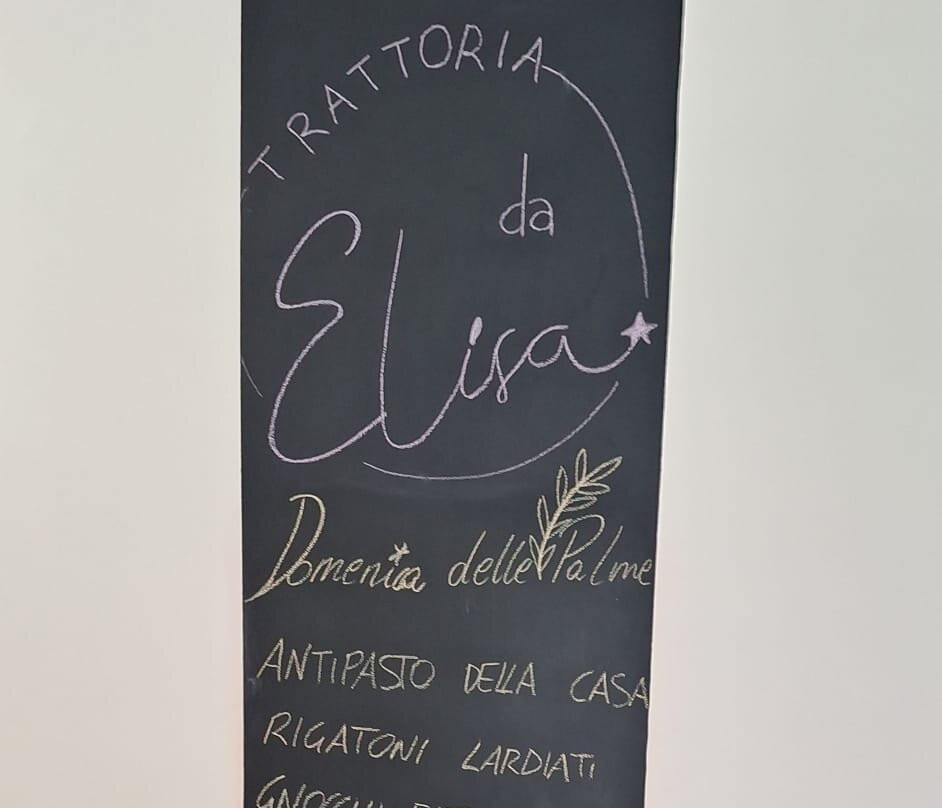 TRATTORIA
da
Elisa
Domenica delle Palme
ANTIPASTO DELLA CASA
RIGATONI LARDIATI
GNOCCHI